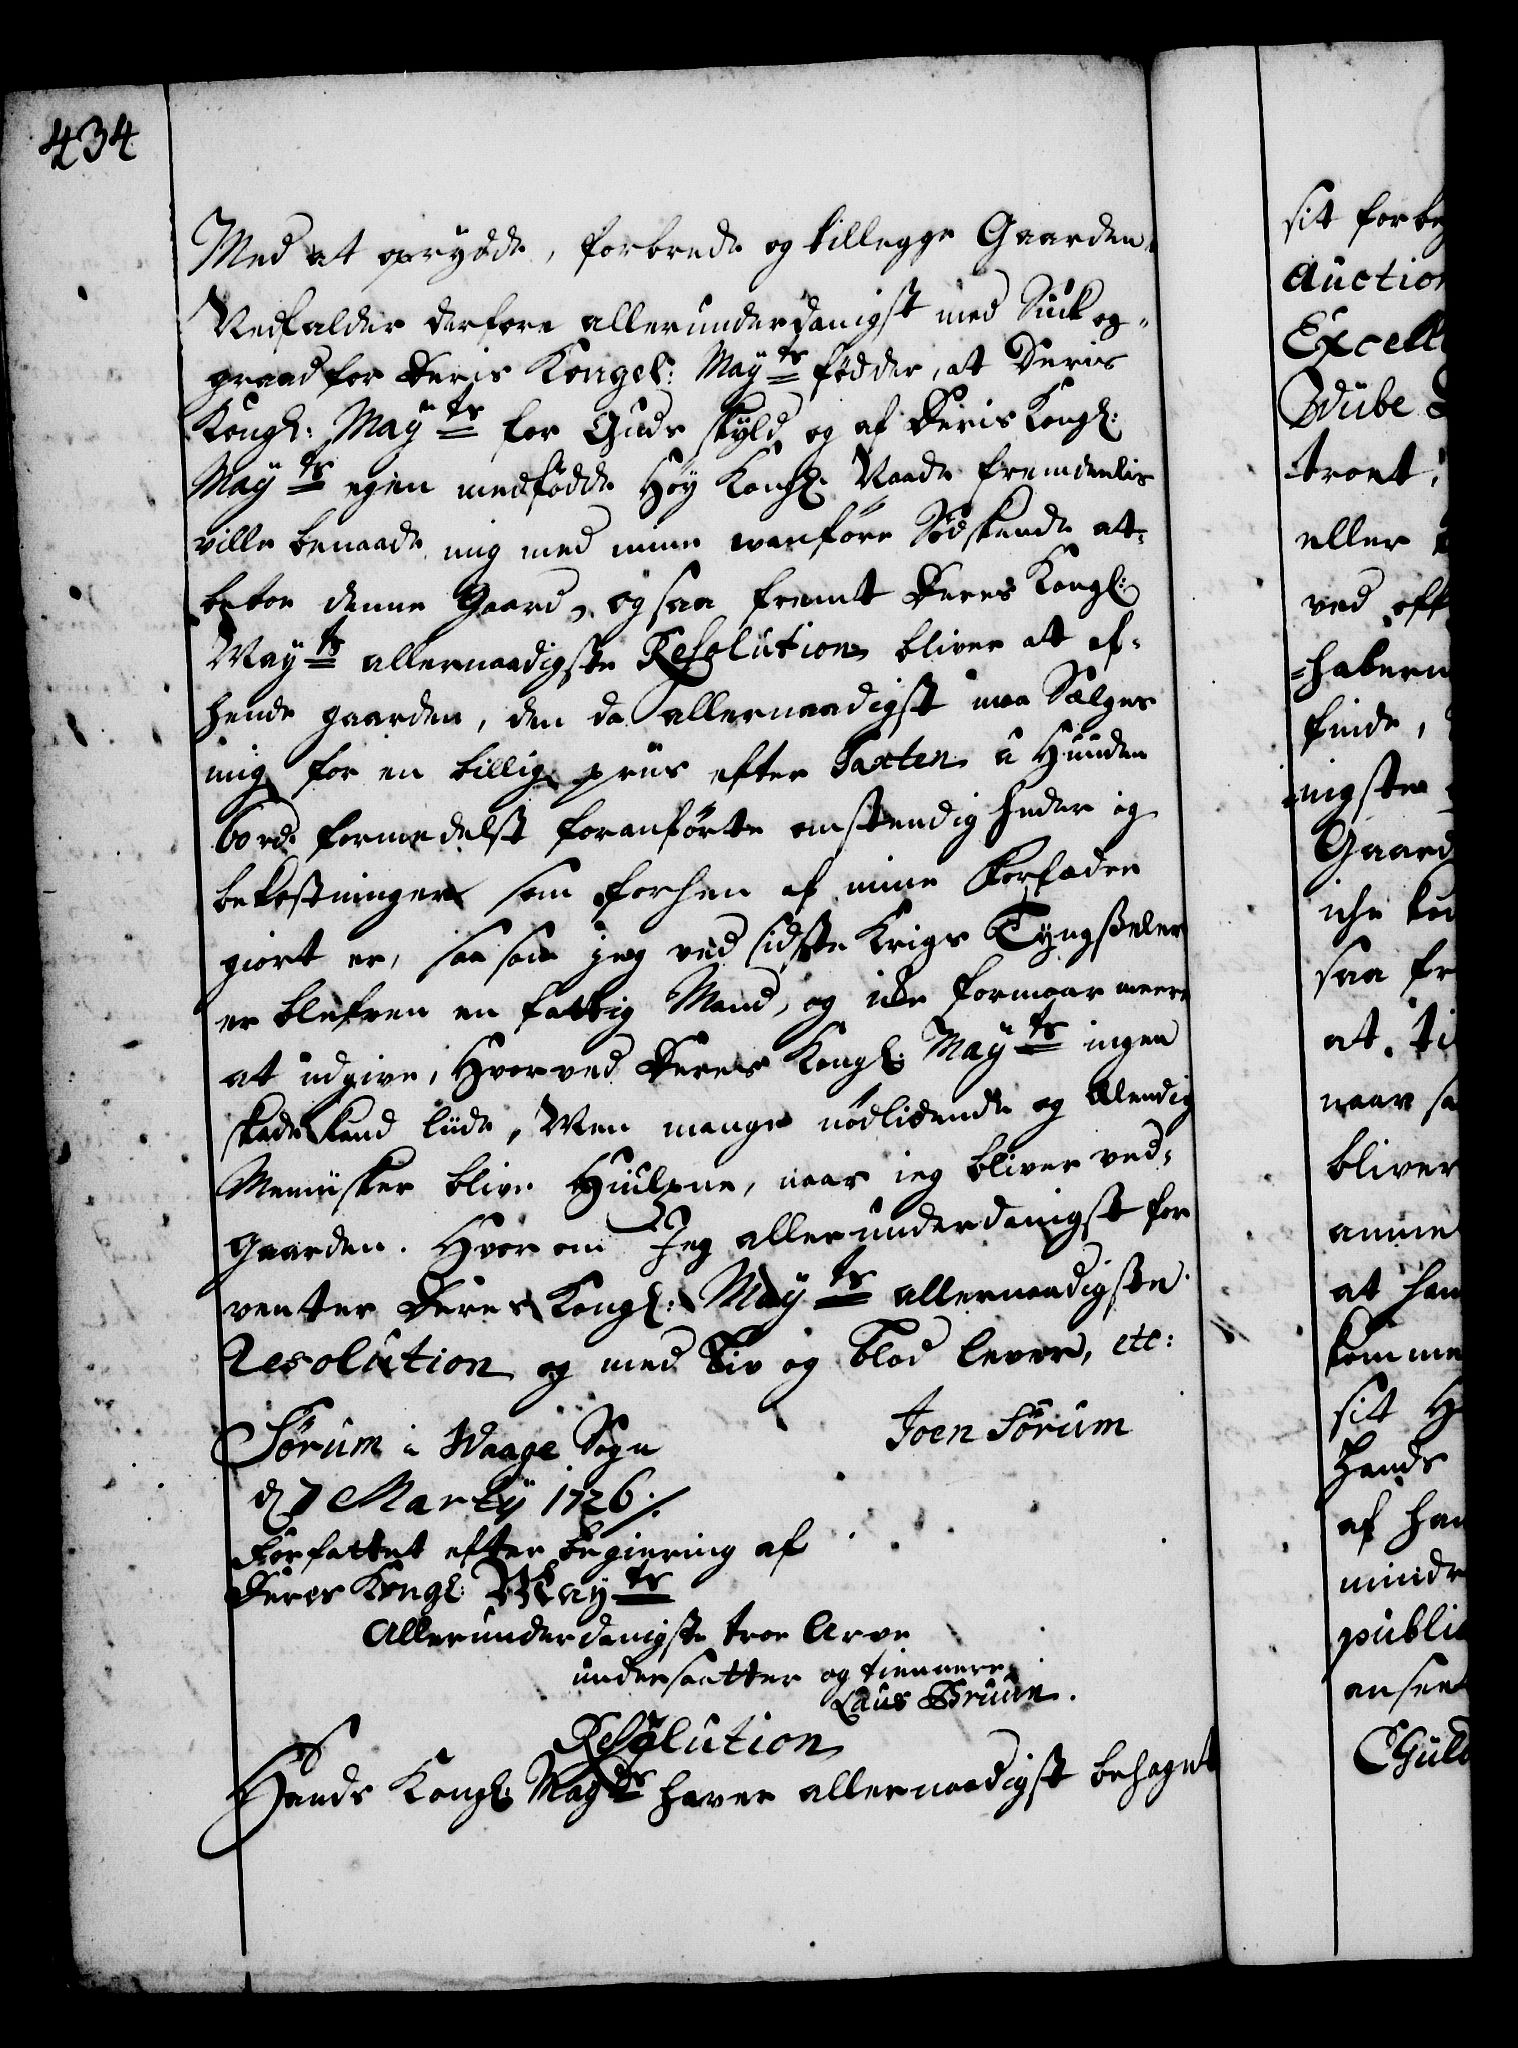 434
Med at oprydde, forbrede og tillegge Gaarden.
Nedfalder derfore allerunderdanigst med Suck og-
graad for Deris Kongel: Mayts fødder, at Deris
Kongl: Mayts for Guds skyld og af Deris Kongl:
Mayts egen medfødde Høy Kongl: Naade fremdeelis
ville benaade mig med mine vanføre Sødskende at-
beboe denne Gaard, og saa fremt Deres Kongl:
Mayts allernaadigste Resolution bliver at af-
hende gaarden, den da allernaadigst maa Sælges
mig for en billig priis efter Taxten à Hunden
60 rd. formedelst foranførte omstendigheder og
bekostninger som forhen af mine Forfædre
giort er, saa som jeg ved sidste Krigs Tyngsseler
er blefven en fattig Mand, og icke formaar meere
at udgive, Hvorved Deres Kongl: Mayts ingen
skade kand liide, Men mange nødlidende og Elendig
Menisker blive Hiulpne, naar jeg bliver ved-
Gaarden. Hvor om Jeg allerunderdanigst for
venter Deres Kongl: Mayts allernaadigste
Resolution og med Liv og Blod lever, etc:
Sørum i Waage Sogn
Joen Sørum
d 7 Marty 1726 ./.
Forfattet efter begiering af
Deres Kongl: Mayts
Allerunderdanigste troe Arve
undersaatter og tiennere
Laus Bruun.
Resolution
Hands Kongl: Mayts haver allernaadigst behaget
sit forbe
auction
Excell
troet
eller
ved off
-habern
finde,
ningsten
Gaard
iche
saa fr
at. ti
naar sa
bliver
anme
at han
komme
sit H
Hands
af han
mindr
public
anseet
CGuld